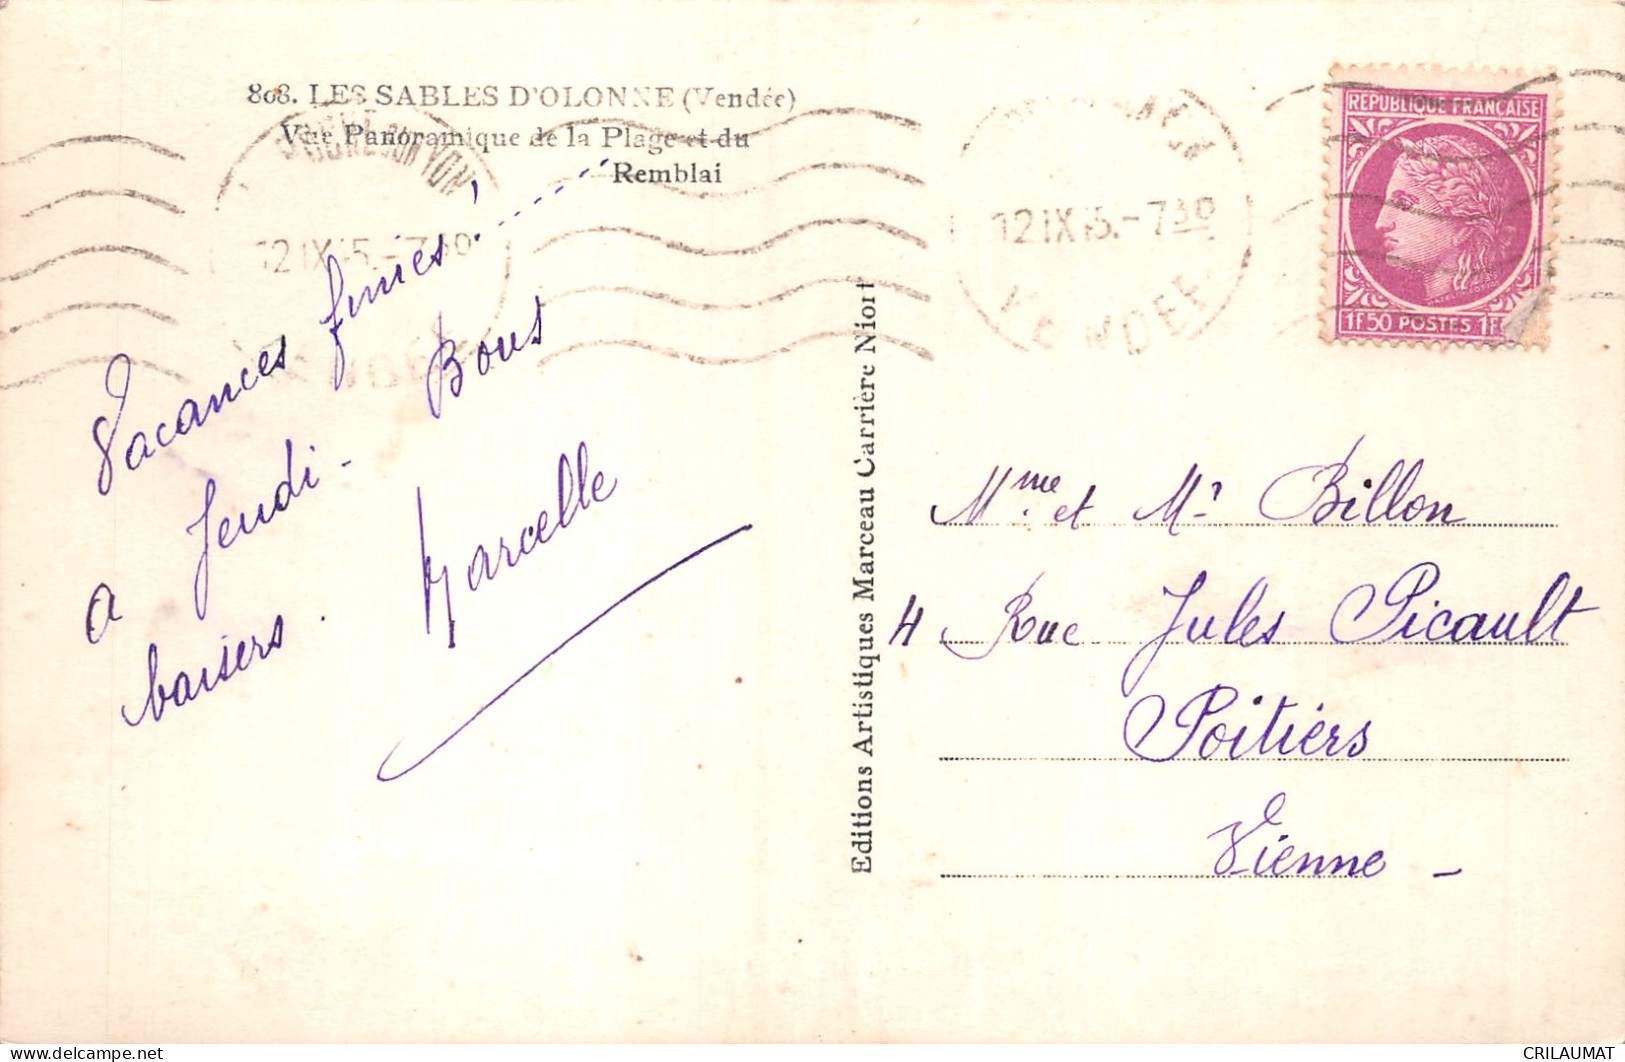 808. LES SABLES D'OLONNE (Vendée)
Vue Panoramique de la Plage et du
Remblai
SUR YON
12 IX 45.-7 30
Vacances finies!
a Jeudi - Bons
baisers. Marcelle
Editions Artistiques Marceau Carrière Niort
12 IX 45.-7 30
VENDEE
REPUBLIQUE FRANÇAISE
1F50 POSTES 1F
Mme. et Mr Billon
4 Rue Jules Picault
Poitiérs
Vienne -
www.delcampe.net
CRILAUMAT